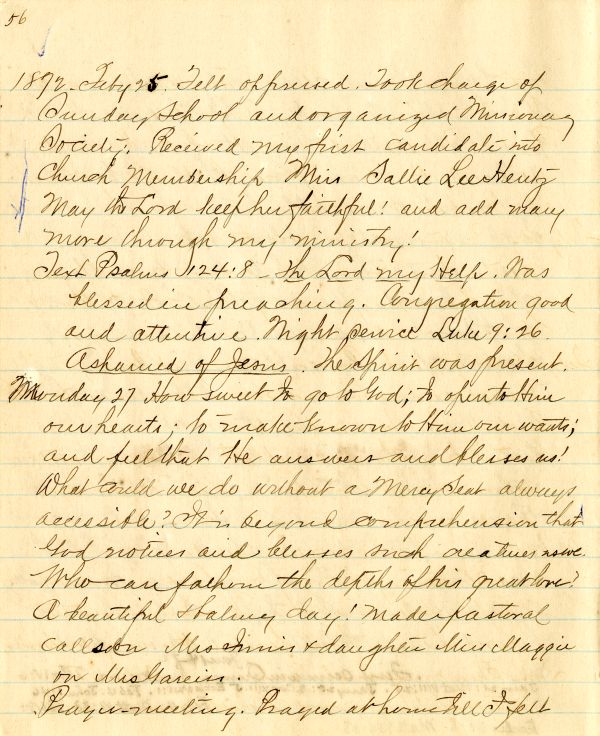 56
1872. Feby 25. Felt oppressed. Took charge of
Sunday School and organized Missionary
Society. Received my first candidate into
Church Membership Miss Sallie Lee Hentz
May the Lord keep her faithful! and add many
more through my ministry!
Text Psalms 124:8 - The Lord my Help. Was
blessed in preaching. Congregation good
and attentive. Night service Luke 9:26.
Ashamed of Jesus. The Spirit was present.
Monday 27 How sweet to go to God; to open to Him
our hearts; to make known to Him our wants;
and feel that He answers and blesses us!
What could we do without a Mercy Seat always
accessible? It is beyond comprehension that
God notices and blesses such creatures as we.
Who can fathom the depths of his great love?
A beautiful & balmy day! Made pastoral
calls on Mrs & daughter Miss Maggie
on Mrs
Prayer-meeting. Prayed at home till I felt